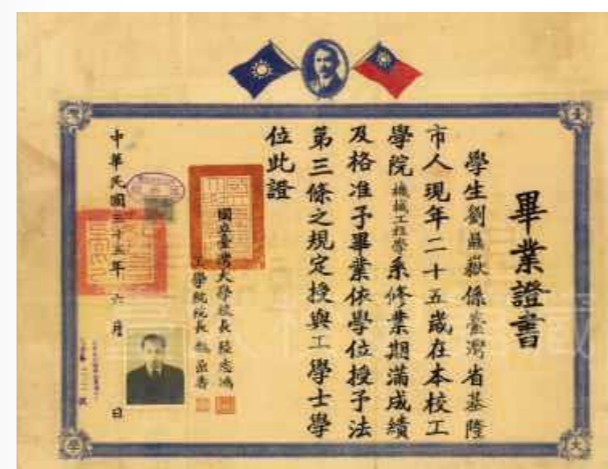 畢業證書
學生劉鼎嶽係臺灣省基隆
市人現年二十五歲在本校工
學院機械工程學系修業期滿成績
及格准予畢業依學位授予法
第三條之規定授與工學士學
位此證
國立臺灣大學校長陸志鴻
工學院院長
中華民國三十五年六月 日
臺
灣
大
學